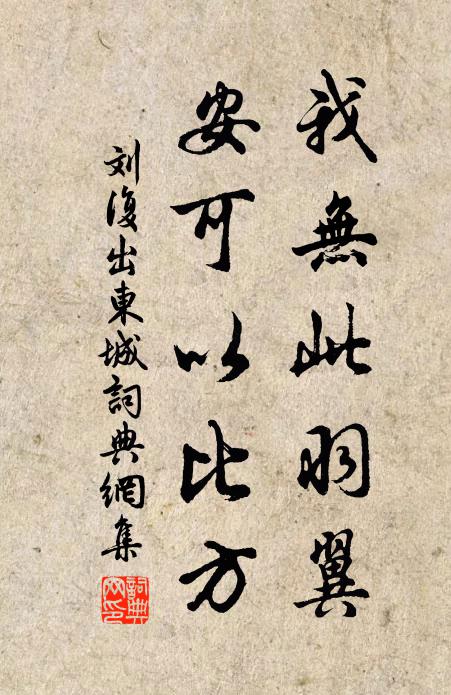 我無此羽翼
安可以比方
刘復出東城詞典網集
詞典網印